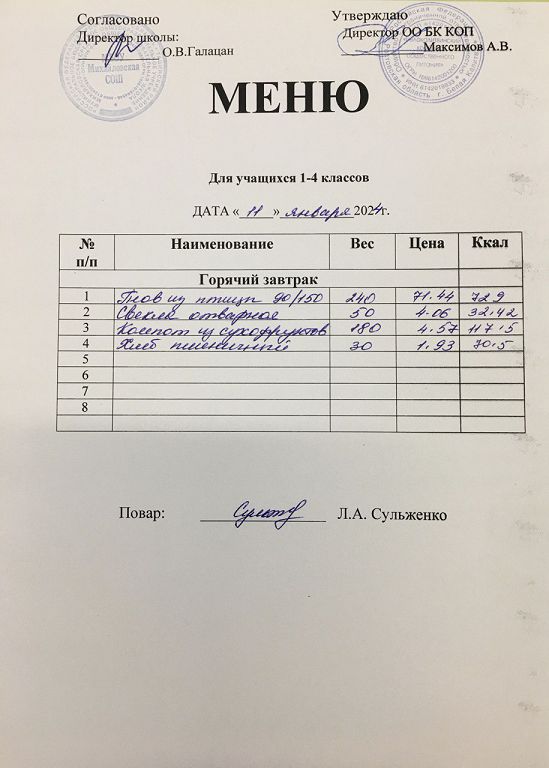 Согласовано Утверждаю
Директор школы: Директор ОО БК КОП
О.В.Галацан Максимов А.В.
Михайловская
СОШ
МЕНЮ
Для учащихся 1-4 классов
ДАТА « 11 » января 2024г.
№ п/п Наименование Вес Цена Ккал
Горячий завтрак
1 Плов из птицы 90/150 240 71.44 729
2 Свекла отварная 50 4.06 32.42
3 Компот из сухофруктов 180 4.57 117.5
4 Хлеб пшеничный 30 1.93 70.5
5
6
7
8
Повар: Л.А. Сульженко